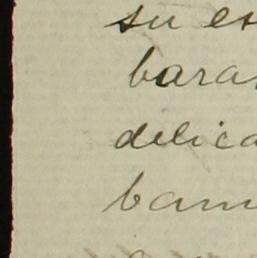 su es
bara
delica
bam